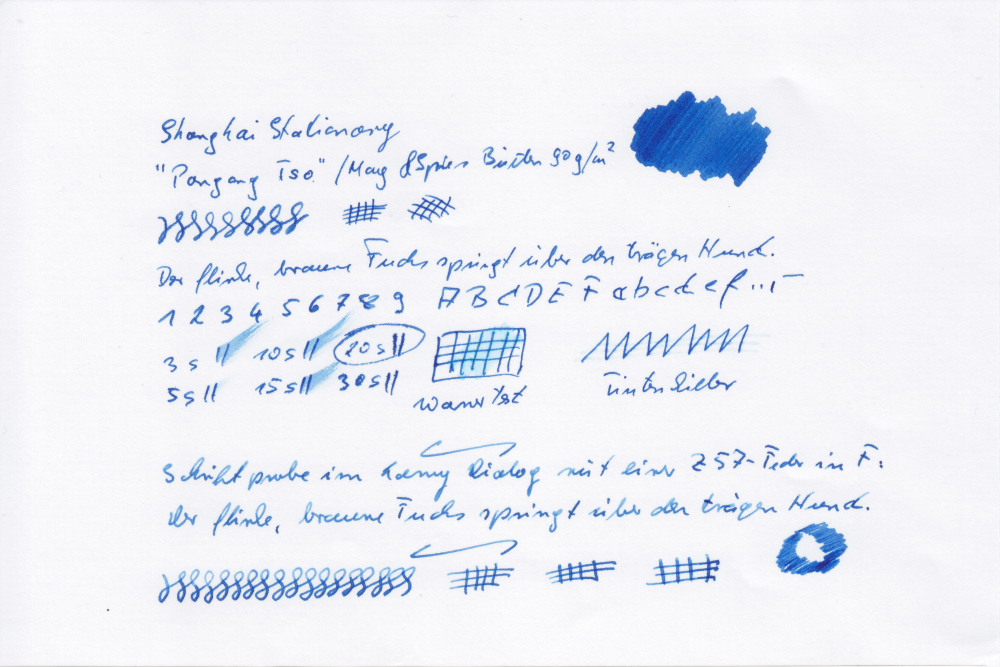 Shanghai Stationary
"Pangang Tso" / May & Spies Bütten 90g/m²
Der flinke, braune Fuchs springt über den trägen Hund.
1 2 3 4 5 6 7 8 9 A B C D E F a b c d e f ...
3s 10s 20s
5s 15s 30s
Wassertest Tintenkiller
Schriftprobe im Lamy Dialog mit einer Z57-Feder in F:
Der flinke, braune Fuchs springt über den trägen Hund.